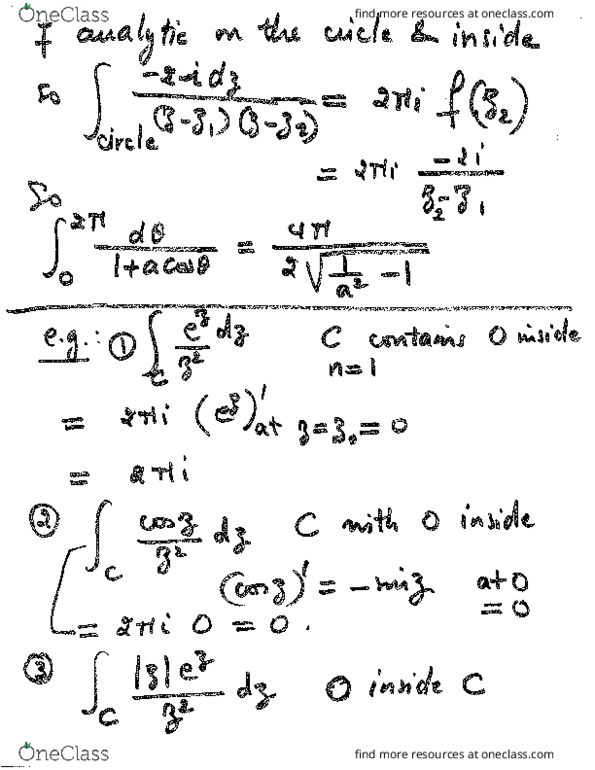 OneClass find more resources at oneclass.com
f analytic on the circle & inside
so ∫_circle -2i dz / ((z-z₁)(z-z₂)) = 2πi f(z₂)
= 2πi -2i / (z₂-z₁)
So
∫₀^2π dθ / (1+a cosθ) = 4π / (2√(1/a² - 1))
e.g.: ① ∫_C e^z/z² dz C contains 0 inside
n=1
= 2πi (e^z)' at z=z₀=0
= 2πi
② ∫_C cosz/z² dz C with 0 inside
(cosz)' = -sinz at 0
= 0
= 2πi 0 = 0.
③ ∫_C |z|e^z/z² dz 0 inside C
OneClass find more resources at oneclass.com